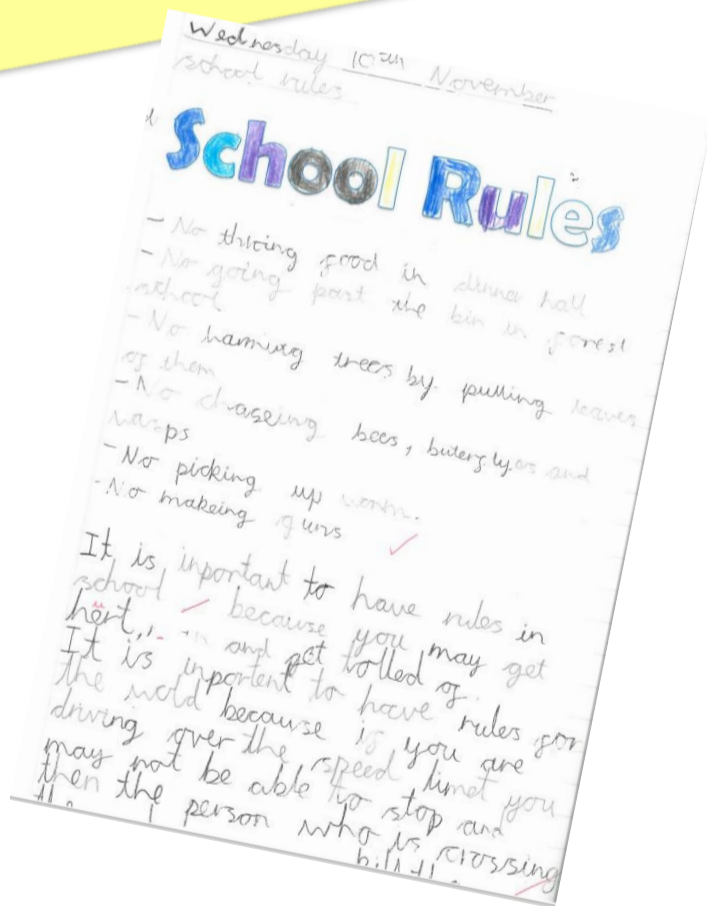 Wednesday 10th November
school rules
School Rules
- No thicing food in dinner hall
- No going past the bin in forest
school
- No haming trees by pulling leaves
of them
- No chaseing bees, buterflyes and
wasps
- No picking up worm.
- No makeing guns
It is inportant to have rules in
school because you may get
hurt, and get tolled of.
It is inportent to have rules for
the wold because if you are
driving over the speed limet you
may not be able to stop and
then the person who is crossing